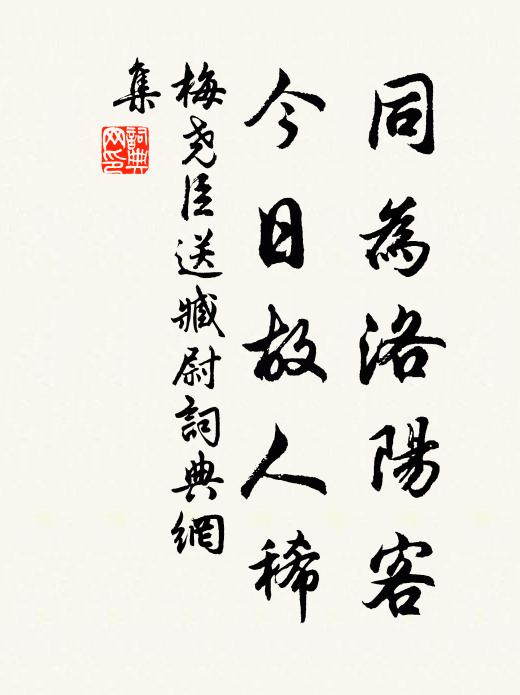 同為洛陽客
今日故人稀
梅尧臣送臧尉詞典網
集
詞典
网印